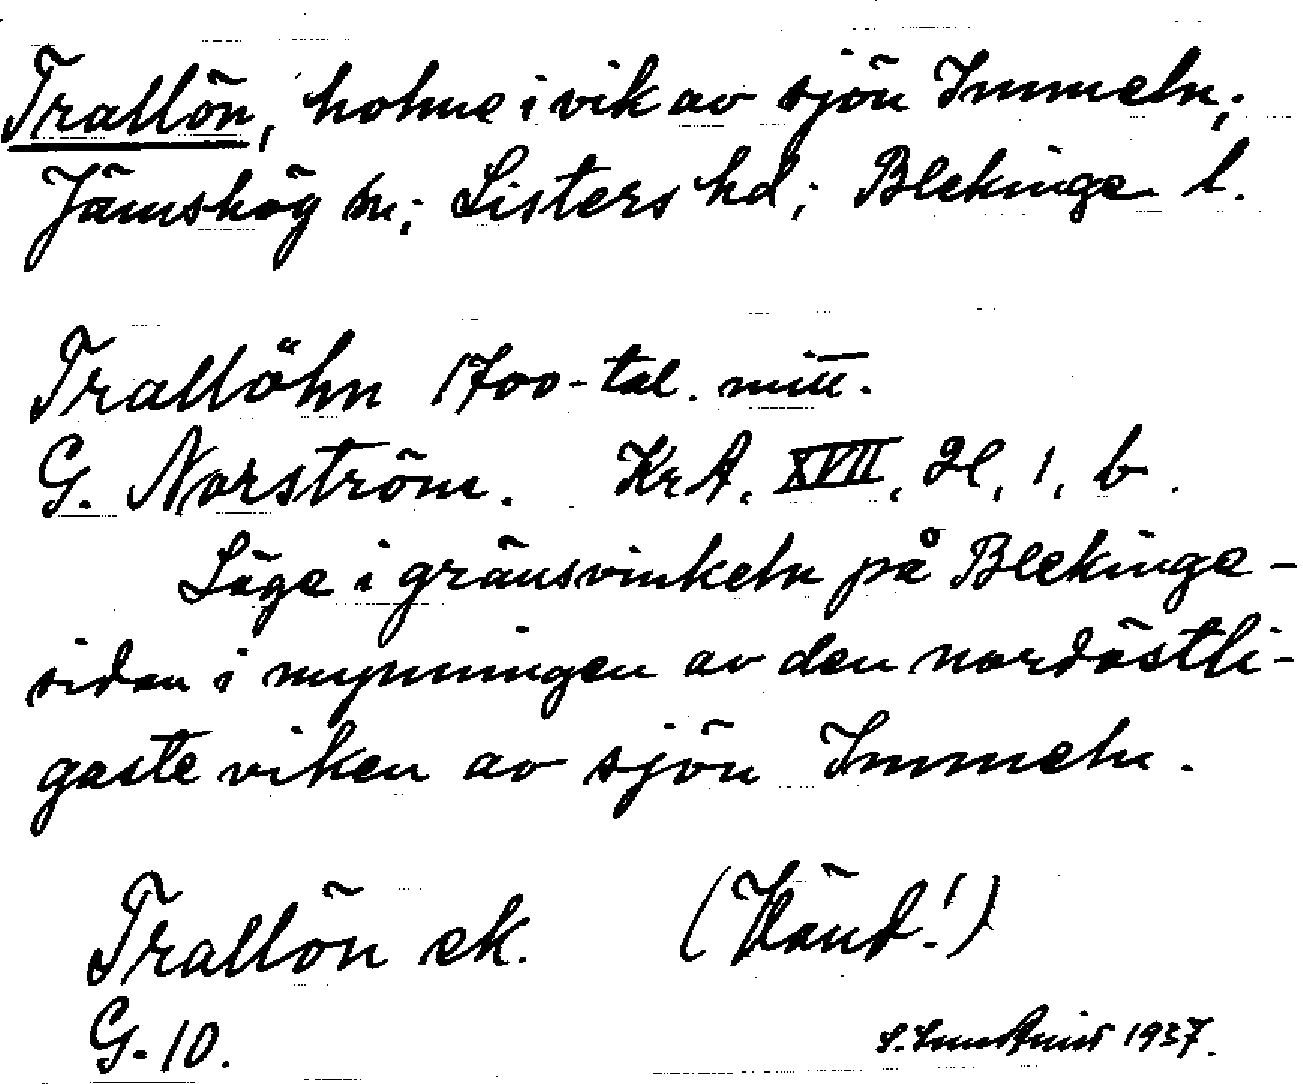 Trallön, holme i vik av sjön Immeln;
Jämshög sn; Listers hd; Blekinge l.
Trallöhn 1700-tal. mitt.
G. Norström. KrA. XVII, 2l, 1, b.
Läge i gränsvinkeln på Blekinge-
sidan i mynningen av den nordöstli-
gaste viken av sjön Immeln.
Trallön ek. (Vänd!)
G-10.
1937.